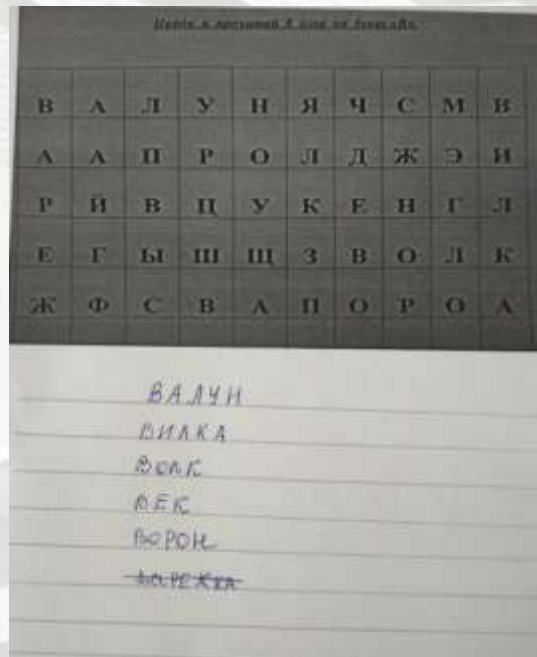 Найди и прочитай слов на букву
В А Л У Н Я Ч С М В
А А П Р О Л Д Ж Э И
Р Й В Ц У К Е Н Г Л
Е Г Ы Ш Щ З В О Л К
Ж Ф С В А П О Р О А
ВАЛУН
ВИЛКА
ВОЛК
ВЕК
ВОРОН
ВАРЕЖКА